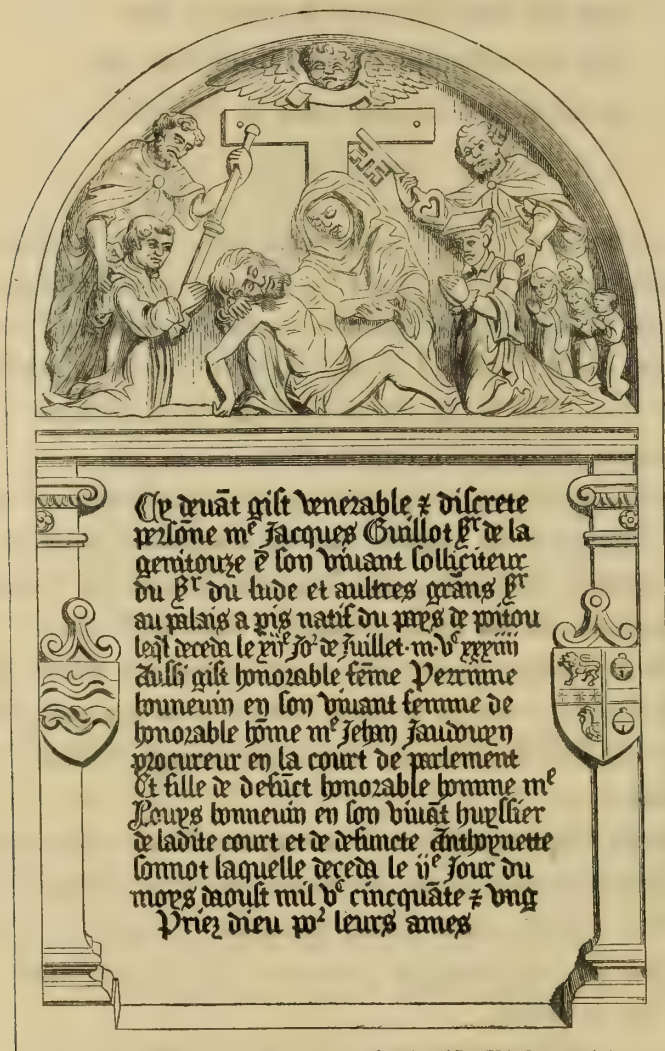 Cy deuāt gist venerable & discrete
persōne mᵉ Jacques Guillot Sʳ de la
genitouze ē son viuant solliciteur
du Sʳ du lude et aultres grāns Sʳ
au palais a pis natif du pays de poitou
leql deceda le xiiᵉ joʳ de Juillet·m·vᶜ xxxiiii
Aussi gist honorable fēme Perrinne
bonneuin en son viuant femme de
honorable hōme mᵉ Jehan Jaudouyn
procureur en la court de parlement
Et fille de defūct honorable homme mᵉ
Louys bonneuin en son viuāt huyssier
de ladite court et de defuncte Anthoynette
sonnot laquelle deceda le iiᵉ Jour du
moys daoust mil vᶜ cincquāte & vng
Priez dieu poʳ leurs ames